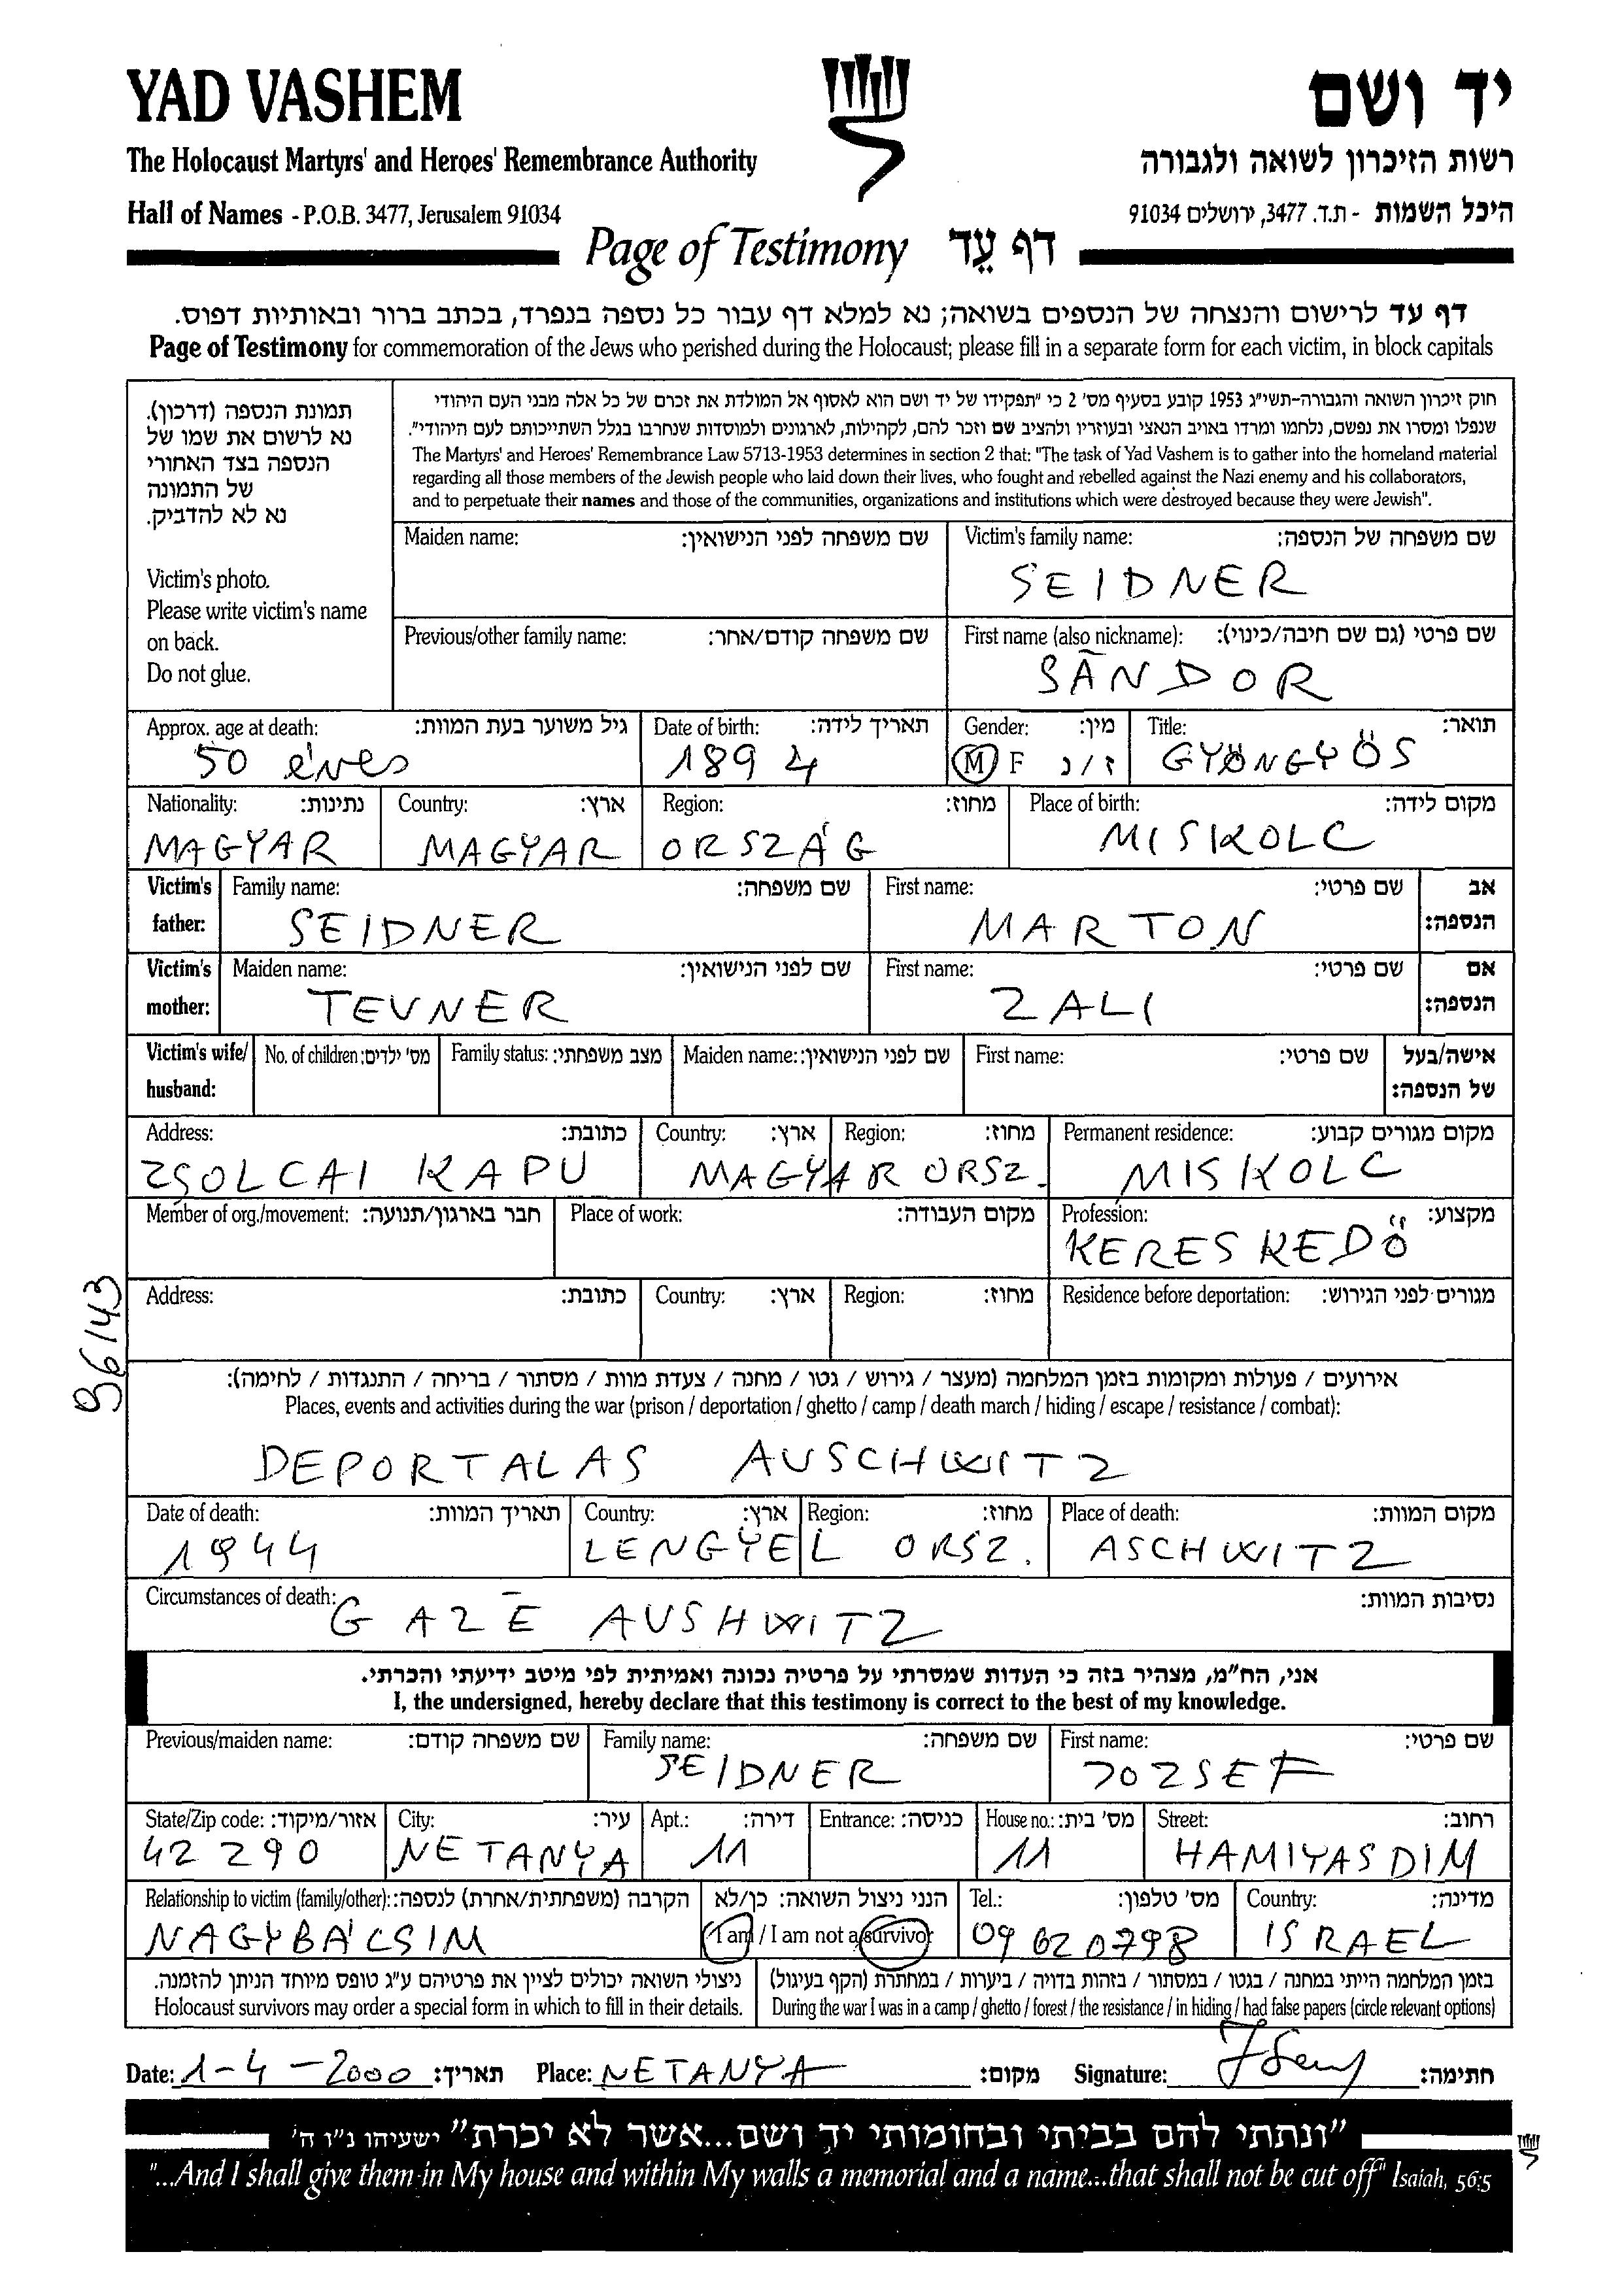 YAD VASHEM
יד ושם
The Holocaust Martyrs' and Heroes' Remembrance Authority
רשות הזיכרון לשואה ולגבורה
Hall of Names - P.O.B. 3477, Jerusalem 91034
היכל השמות - ת.ד. 3477, ירושלים 91034
Page of Testimony דף עֵד
דף עד לרישום והנצחה של הנספים בשואה; נא למלא דף עבור כל נספה בנפרד, בכתב ברור ובאותיות דפוס.
Page of Testimony for commemoration of the Jews who perished during the Holocaust; please fill in a separate form for each victim, in block capitals
תמונת הנספה (דרכון).
נא לרשום את שמו של
הנספה בצד האחורי
של התמונה
נא לא להדביק.
Victim's photo.
Please write victim's name
on back.
Do not glue.
חוק זיכרון השואה והגבורה-תשי"ג 1953 קובע בסעיף מס' 2 כי "תפקידו של יד ושם הוא לאסוף אל המולדת את זכרם של כל אלה מבני העם היהודי
שנפלו ומסרו את נפשם, נלחמו ומרדו באויב הנאצי ובעוזריו ולהציב שם וזכר להם, לקהילות, לארגונים ולמוסדות שנחרבו בגלל השתייכותם לעם היהודי".
The Martyrs' and Heroes' Remembrance Law 5713-1953 determines in section 2 that: "The task of Yad Vashem is to gather into the homeland material
regarding all those members of the Jewish people who laid down their lives, who fought and rebelled against the Nazi enemy and his collaborators,
and to perpetuate their names and those of the communities, organizations and institutions which were destroyed because they were Jewish".
Maiden name: שם משפחה לפני הנישואין:
Victim's family name: שם משפחה של הנספה:
SEIDNER
Previous/other family name: שם משפחה קודם/אחר:
First name (also nickname): שם פרטי (גם שם חיבה/כינוי):
SĀNDOR
Approx. age at death: גיל משוער בעת המוות:
50 éves
Date of birth: תאריך לידה:
1894
Gender: מין:
M F ז / נ
Title: תואר:
GYÖNGYÖS
Nationality: נתינות:
MAGYAR
Country: ארץ:
MAGYAR
Region: מחוז:
ORSZÁG
Place of birth: מקום לידה:
MISKOLC
Victim's father:
Family name: שם משפחה:
SEIDNER
First name: שם פרטי:
MARTON
אב הנספה:
Victim's mother:
Maiden name: שם לפני הנישואין:
TEVNER
First name: שם פרטי:
ZALI
אם הנספה:
Victim's wife/ husband:
No. of children: מס' ילדים:
Family status: מצב משפחתי:
Maiden name: שם לפני הנישואין:
First name: שם פרטי:
אישה/בעל של הנספה:
Address: כתובת:
ZSOLCAI KAPU
Country: ארץ: Region: מחוז:
MAGYAR ORSZ.
Permanent residence: מקום מגורים קבוע:
MISKOLC
Member of org./movement: חבר בארגון/תנועה:
Place of work: מקום העבודה:
Profession: מקצוע:
KERESKEDŐ
Address: כתובת:
Country: ארץ:
Region: מחוז:
Residence before deportation: מגורים לפני הגירוש:
אירועים / פעולות ומקומות בזמן המלחמה (מעצר / גירוש / גטו / מחנה / צעדת מוות / מסתור / בריחה / התנגדות / לחימה):
Places, events and activities during the war (prison / deportation / ghetto / camp / death march / hiding / escape / resistance / combat):
DEPORTALAS AUSCHWITZ
Date of death: תאריך המוות:
1944
Country: ארץ: Region: מחוז:
LENGYEL ORSZ.
Place of death: מקום המוות:
ASCHWITZ
Circumstances of death: נסיבות המוות:
GAZĒ AUSHWITZ
אני, הח"מ, מצהיר בזה כי העדות שמסרתי על פרטיה נכונה ואמיתית לפי מיטב ידיעתי והכרתי.
I, the undersigned, hereby declare that this testimony is correct to the best of my knowledge.
Previous/maiden name: שם משפחה קודם:
Family name: שם משפחה:
SEIDNER
First name: שם פרטי:
JOZSEF
State/Zip code: אזור/מיקוד:
42290
City: עיר:
NETANYA
Apt.: דירה:
11
Entrance: כניסה:
House no.: מס' בית:
11
Street: רחוב:
HAMIYASDIM
Relationship to victim (family/other): הקרבה (משפחתית/אחרת) לנספה:
NAGYBÁCSIM
הנני ניצול השואה: כן/לא
I am / I am not a survivor
Tel.: מס' טלפון:
09 620798
Country: מדינה:
ISRAEL
ניצולי השואה יכולים לציין את פרטיהם ע"ג טופס מיוחד הניתן להזמנה.
Holocaust survivors may order a special form in which to fill in their details.
בזמן המלחמה הייתי במחנה / בגטו / במסתור / בזהות בדויה / ביערות / במחתרת (הקף בעיגול)
During the war I was in a camp / ghetto / forest / the resistance / in hiding / had false papers (circle relevant options)
Date: 1-4-2000 תאריך: Place: NETANYA מקום: Signature: חתימה:
"ונתתי להם בביתי ובחומותי יד ושם...אשר לא יכרת" ישעיהו נ"ו ה'
"...And I shall give them in My house and within My walls a memorial and a name...that shall not be cut off" Isaiah, 56:5